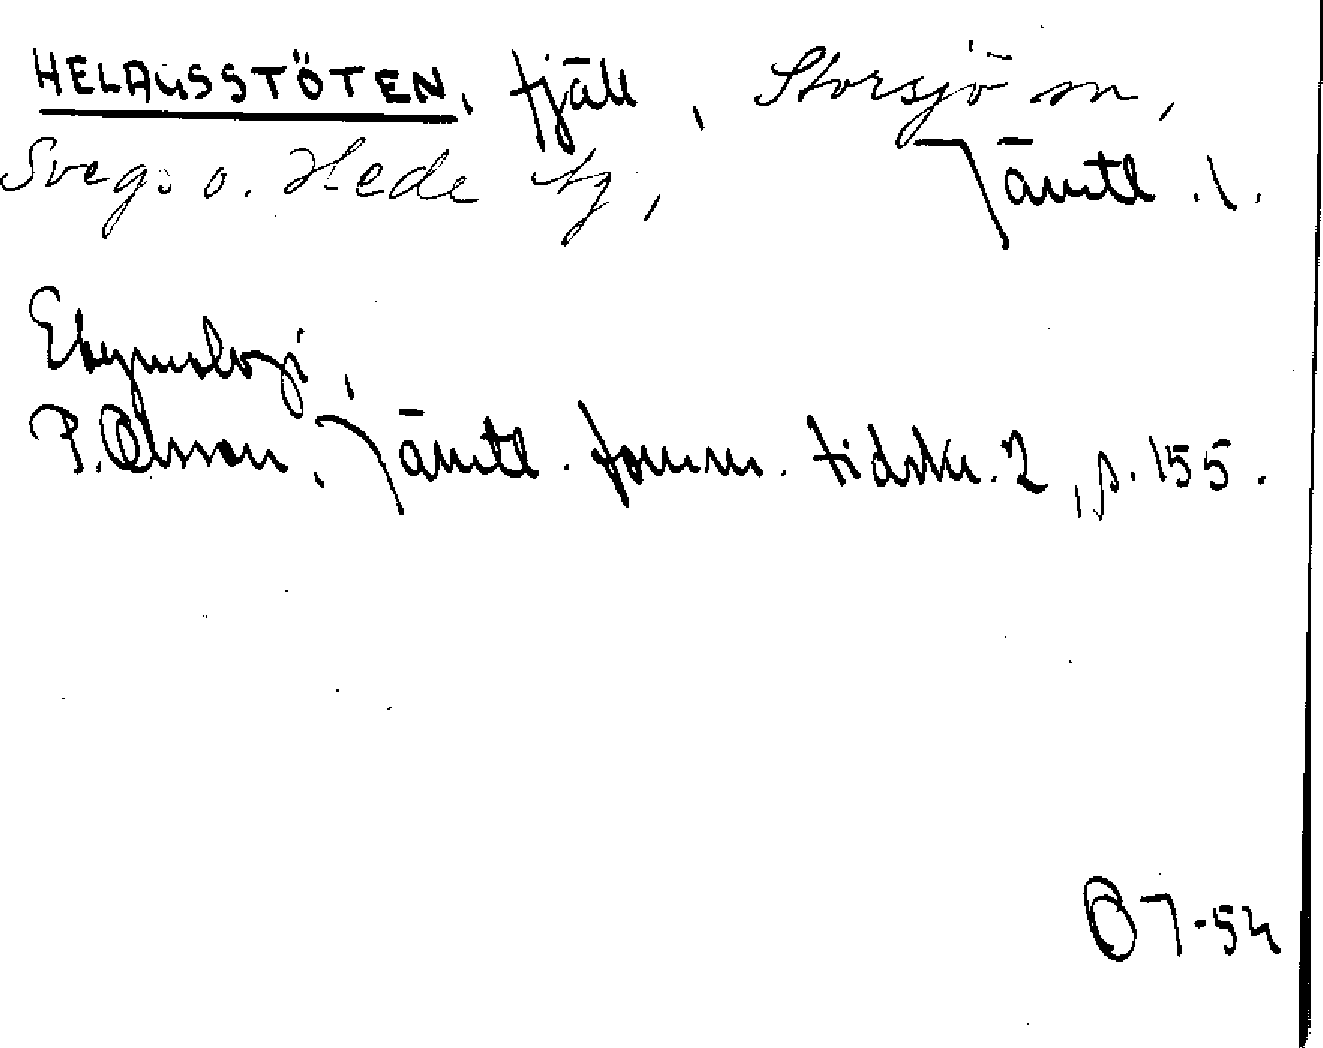 HELAGSSTÖTEN, fjäll, Storsjö sn,
Svegs o. Hede tg, Jämtl. l.
Etymologi,
P. Olsson, Jämtl. fornm. tidskr. 2, s. 155.